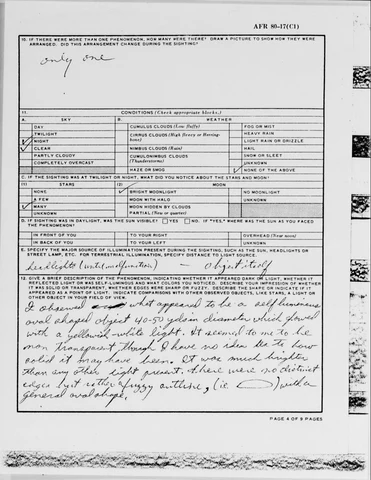 AFR 80-17(C1)
10. IF THERE WERE MORE THAN ONE PHENOMENON, HOW MANY WERE THERE? DRAW A PICTURE TO SHOW HOW THEY WERE
ARRANGED. DID THIS ARRANGEMENT CHANGE DURING THE SIGHTING?
only one
11. CONDITIONS (Check appropriate blocks.)
A. SKY B. WEATHER
DAY CUMULUS CLOUDS (Low fluffy) FOG OR MIST
TWILIGHT CIRRUS CLOUDS (High fleecy or Herring-bone) HEAVY RAIN
✓ NIGHT LIGHT RAIN OR DRIZZLE
✓ CLEAR NIMBUS CLOUDS (Rain) HAIL
PARTLY CLOUDY CUMULONIMBUS CLOUDS (Thunderstorms) SNOW OR SLEET
COMPLETELY OVERCAST UNKNOWN
HAZE OR SMOG ✓ NONE OF THE ABOVE
C. IF THE SIGHTING WAS AT TWILIGHT OR NIGHT, WHAT DID YOU NOTICE ABOUT THE STARS AND MOON?
(1) STARS (2) MOON
NONE ✓ BRIGHT MOONLIGHT NO MOONLIGHT
A FEW MOON WITH HALO UNKNOWN
✓ MANY MOON HIDDEN BY CLOUDS
UNKNOWN PARTIAL (New or quarter)
D. IF SIGHTING WAS IN DAYLIGHT, WAS THE SUN VISIBLE? YES NO. IF "YES," WHERE WAS THE SUN AS YOU FACED
THE PHENOMENON?
IN FRONT OF YOU TO YOUR RIGHT OVERHEAD (Near noon)
IN BACK OF YOU TO YOUR LEFT UNKNOWN
E. SPECIFY THE MAJOR SOURCE OF ILLUMINATION PRESENT DURING THE SIGHTING, SUCH AS THE SUN, HEADLIGHTS OR
STREET LAMP, ETC. FOR TERRESTRIAL ILLUMINATION, SPECIFY DISTANCE TO LIGHT SOURCE.
headlights (until malfunction) Object itself
12. GIVE A BRIEF DESCRIPTION OF THE PHENOMENON, INDICATING WHETHER IT APPEARED DARK OR LIGHT, WHETHER IT
REFLECTED LIGHT OR WAS SELF-LUMINOUS AND WHAT COLORS YOU NOTICED. DESCRIBE YOUR IMPRESSION OF WHETHER
IT WAS SOLID OR TRANSPARENT, WHETHER EDGES WERE SHARP OR FUZZY. DESCRIBE THE SHAPE OR INDICATE IF IT
APPEARED AS A POINT OF LIGHT. INDICATE COMPARISONS WITH OTHER OBSERVED OBJECTS, LIKE STARS, A LIGHT OR
OTHER OBJECT IN YOUR FIELD OF VIEW.
I observed what appeared to be a self luminous
oval shaped object 40-50 yds in diameter which glowed
with a yellowish white light. It seemed to me to be
non transparent though I have no idea as to how
solid it may have been. It was much brighter
than any other light present. there were no distinct
edges but rather a fuzzy outline, (ie. ) with a
general oval shape.
PAGE 4 OF 9 PAGES